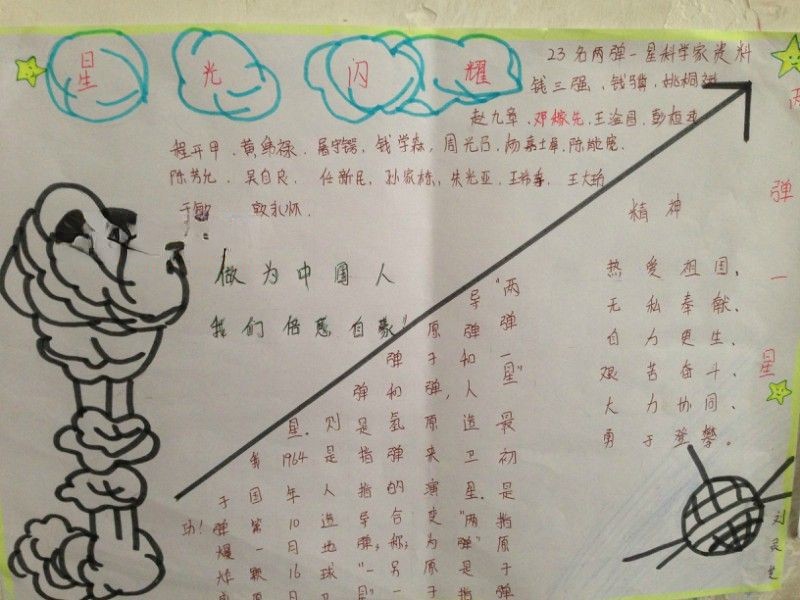 星光闪耀
23名两弹一星科学家资料
钱三强、钱骥、姚桐斌
赵九章、邓稼先、王淦昌、彭桓武
程开甲、黄纬禄、屠守锷、钱学森、周光召、杨嘉墀、陈能宽、
陈芳允、吴自良、任新民、孙家栋、朱光亚、王希季、王大珩
于敏 
做为中国人
我们倍感自豪"
"两弹一星"最初是指原子弹
导弹和人造卫星."两弹"是指
原子弹,来演变为原子
弹和氢弹的合称,另一
弹是指导弹;"一
则是人造地球卫星"
星.1964年10月16日
国第一颗原
于弹爆炸成
功!
精神
热爱祖国、
无私奉献、
自力更生、
艰苦奋斗、
大力协同、
勇于登攀。
两弹一星